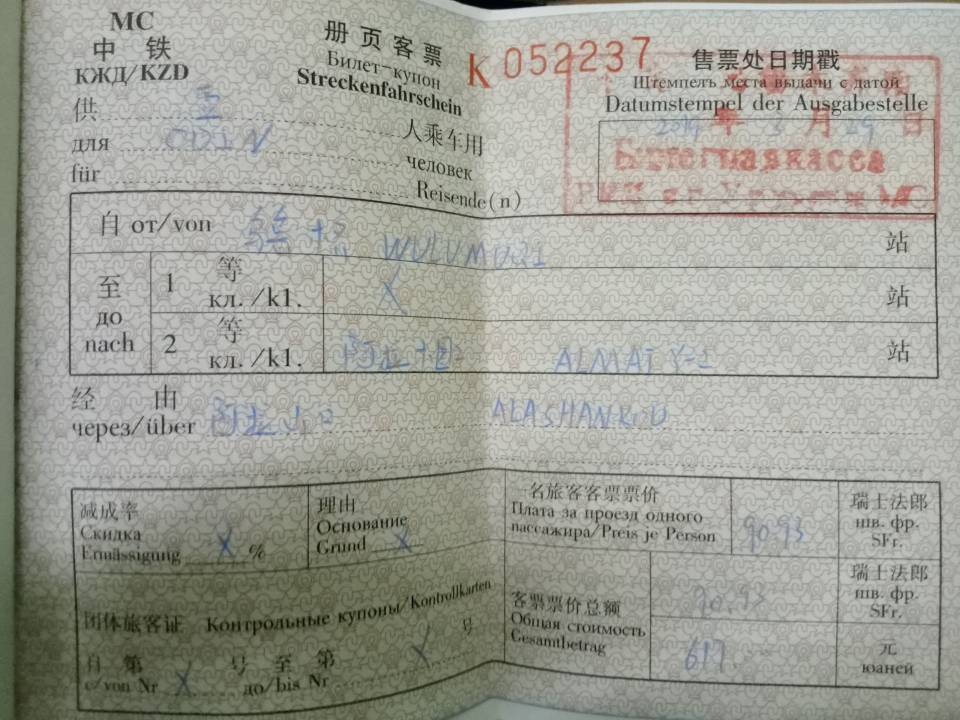 MC
中 铁
КЖД/KZD
册页客票
Билет-купон
Streckenfahrschein
K 052237
售票处日期戳
Штемпель места выдачи с датой
Datumstempel der Ausgabestelle
年 3 月 29 日
供
для ODIN
für
人乘车用
человек
Reisende(n)
自 от/von WULUMUQI 站
至
до
nach
1 等
кл. /k1. X 站
2 等
кл. /k1. ALMATY-2 站
经 由
через/über 阿拉山口 ALASHANKOU
减成率
Скидка
Ermässigung X %
理由
Основание
Grund X
一名旅客客票票价
Плата за проезд одного
пассажира/Preis je Person
90.93
瑞士法郎
шв. фр.
SFr.
团体旅客证 Контрольные купоны/Kontrollkarten
自 第 号 至 第 号
с/von Nr X до/bis Nr X
客票票价总额
Общая стоимость
Gesamtbetrag
90.93
瑞士法郎
шв. фр.
SFr.
617.
元
юаней